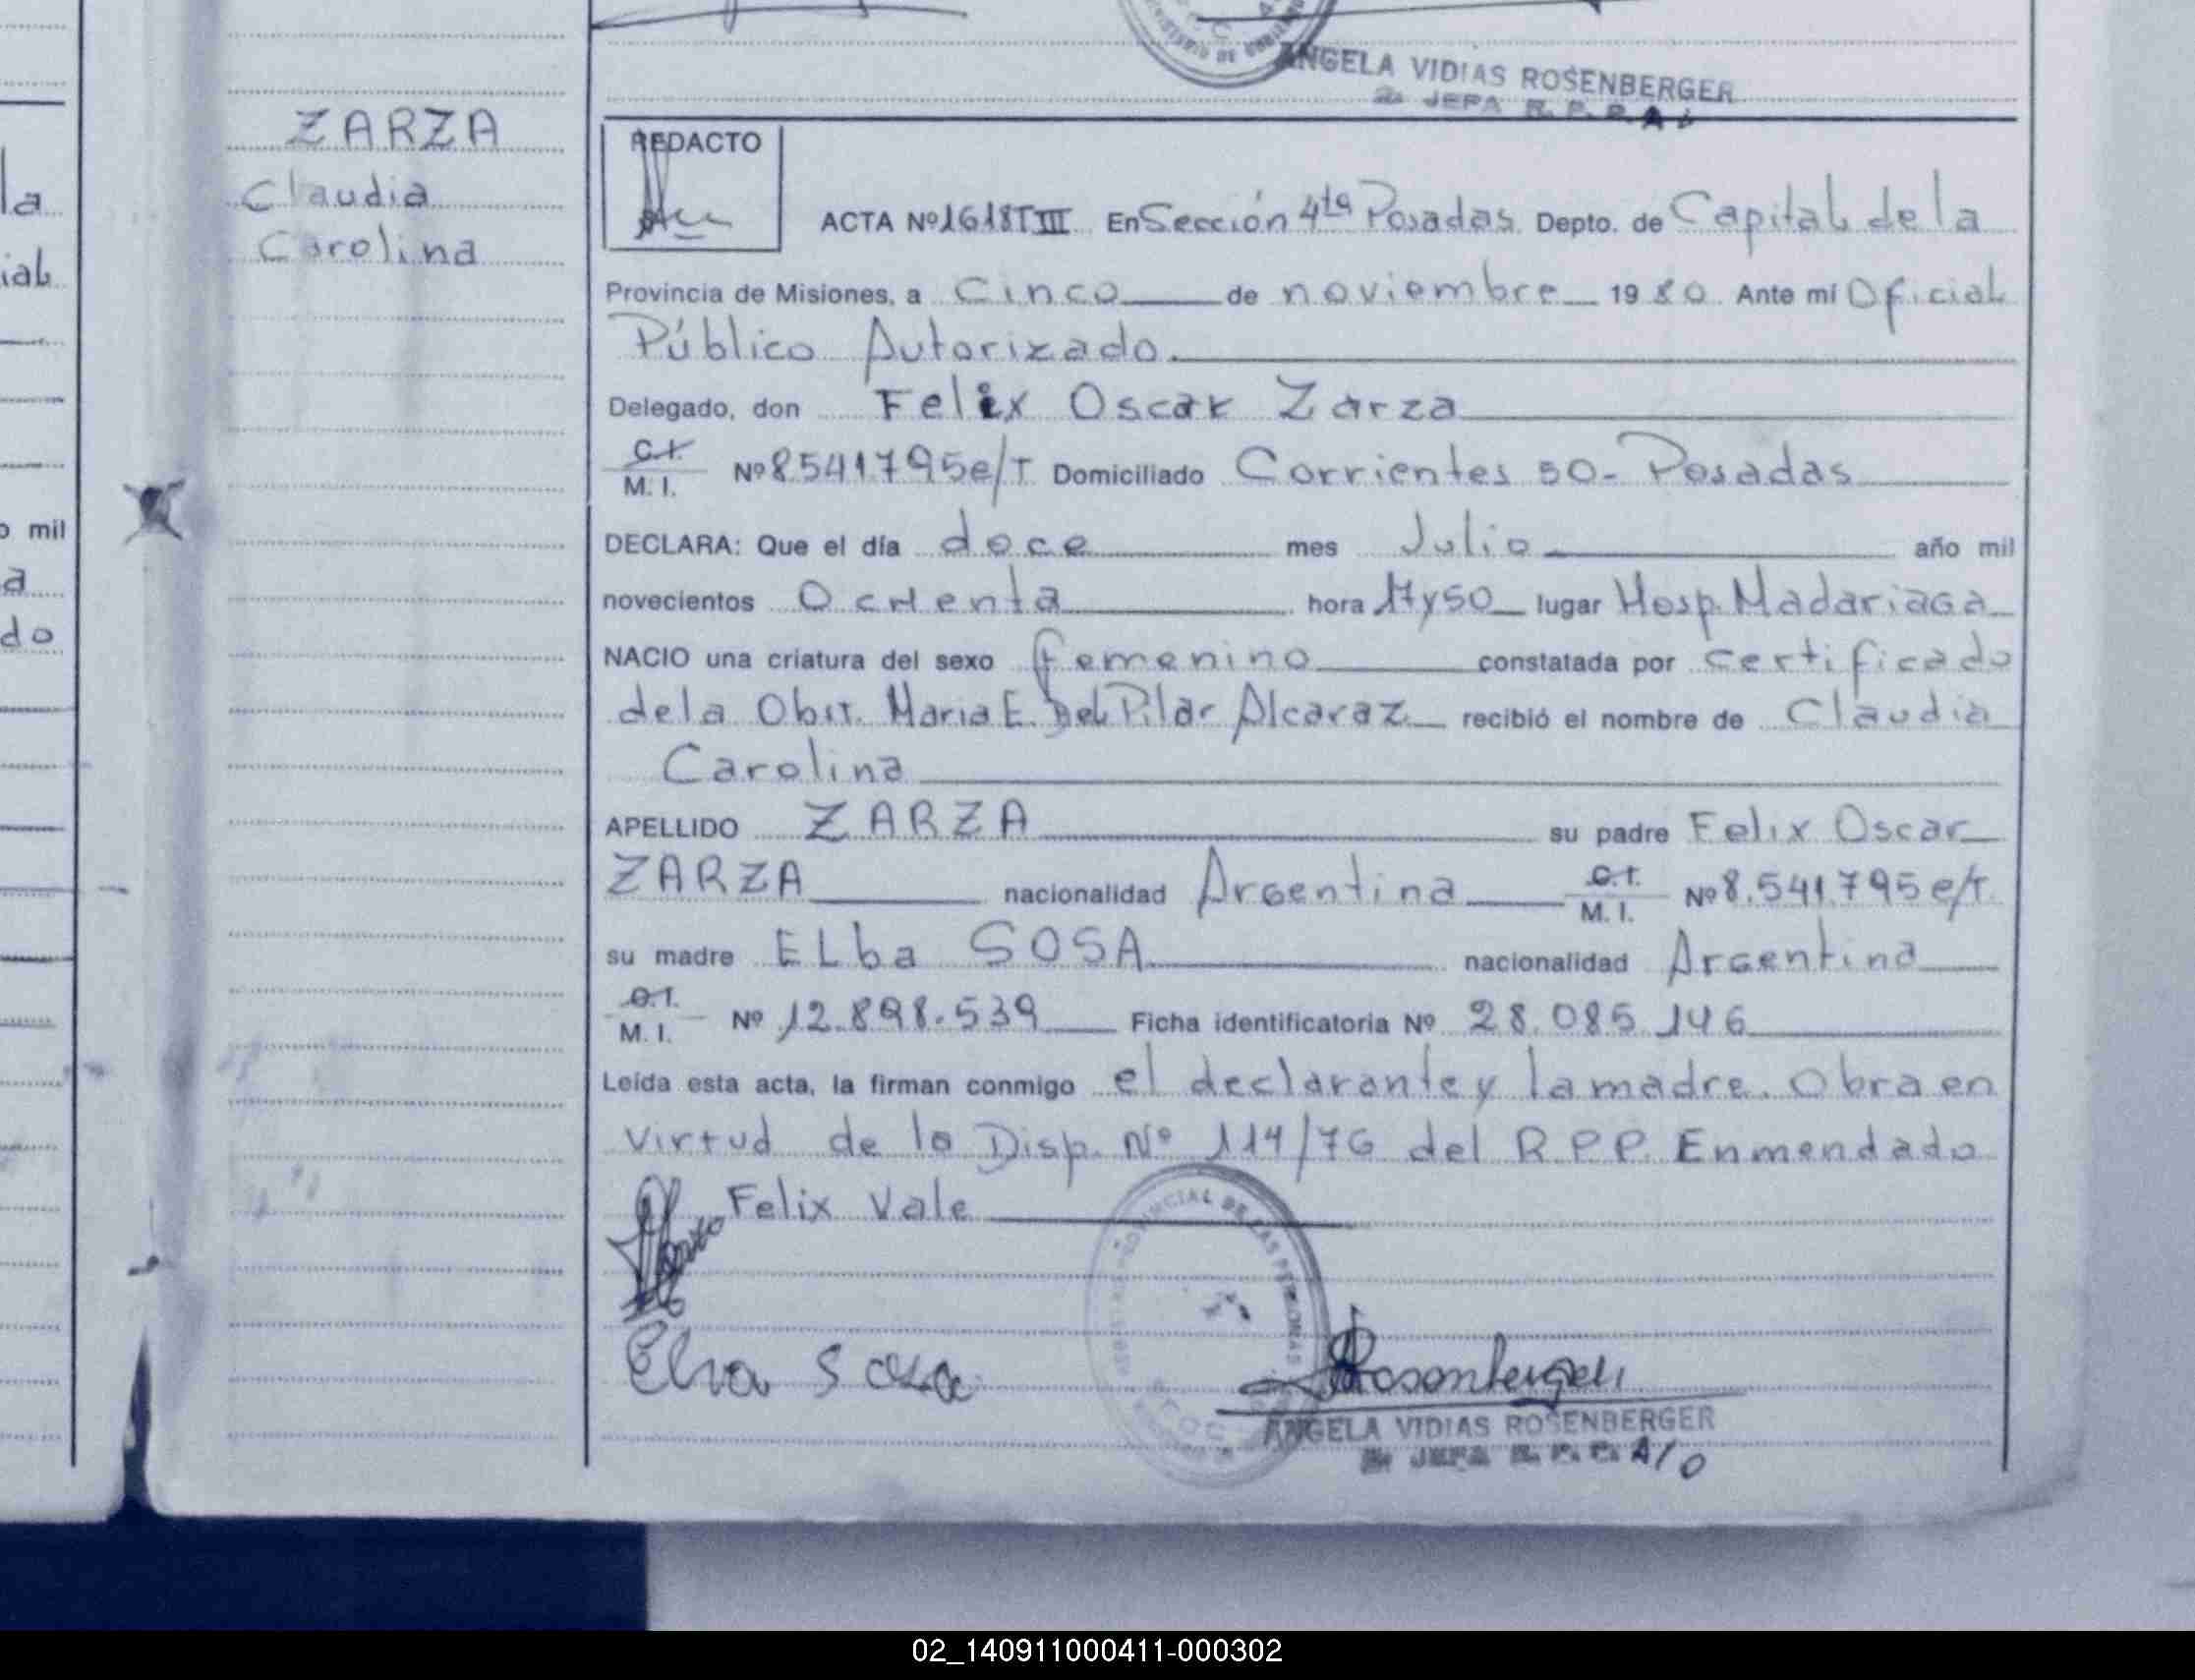 ANGELA VIDIAS ROSENBERGER
JEFA R. P. P.
ZARZA
Claudia
Carolina
la
ial
o mil
a
do
REDACTO
ACTA Nº 1618 T III En Sección 4ta Posadas Depto. de Capital de la
Provincia de Misiones, a Cinco de noviembre 19 80 Ante mí Oficial
Público Autorizado.
Delegado, don Felix Oscar Zarza
C.I.
M. I. Nº 8541795 e/T Domiciliado Corrientes 50- Posadas
DECLARA: Que el día doce mes Julio año mil
novecientos Ochenta hora 17 y 50 lugar Hosp. Madariaga
NACIO una criatura del sexo femenino constatada por certificado
de la Obst. Maria E. Del Pilar Alcaraz recibió el nombre de Claudia
Carolina
APELLIDO ZARZA su padre Felix Oscar
ZARZA nacionalidad Argentina C.I. M. I. Nº 8.541.795 e/T.
su madre ELba SOSA nacionalidad Argentina
C.I.
M. I. Nº 12.898.539 Ficha identificatoria Nº 28.085.146
Leída esta acta, la firman conmigo el declarante y la madre. Obra en
virtud de la Disp. Nº 114/76 del R.P.P. Enmendado
Felix Vale
Elva Sosa
Rosenberger
ANGELA VIDIAS ROSENBERGER
JEFA R. P. P. A/O
02_140911000411-000302